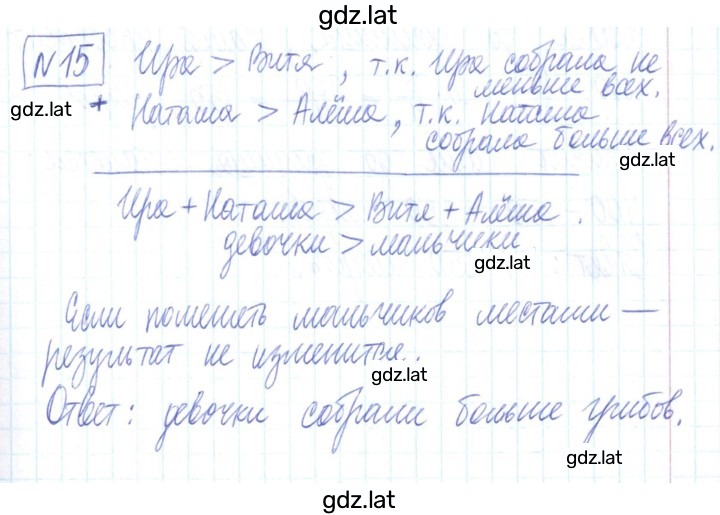 gdz.lat
№15 Ира > Витя, т.к. Ира собрала не
меньше всех.
gdz.lat
+ Наташа > Алёша, т.к. Наташа
собрала больше всех.
gdz.lat
Ира + Наташа > Витя + Алёша.
девочки > мальчики
gdz.lat
Если поменять мальчиков местами —
результат не изменится..
gdz.lat
Ответ: девочки собрали больше грибов.
gdz.lat
gdz.lat